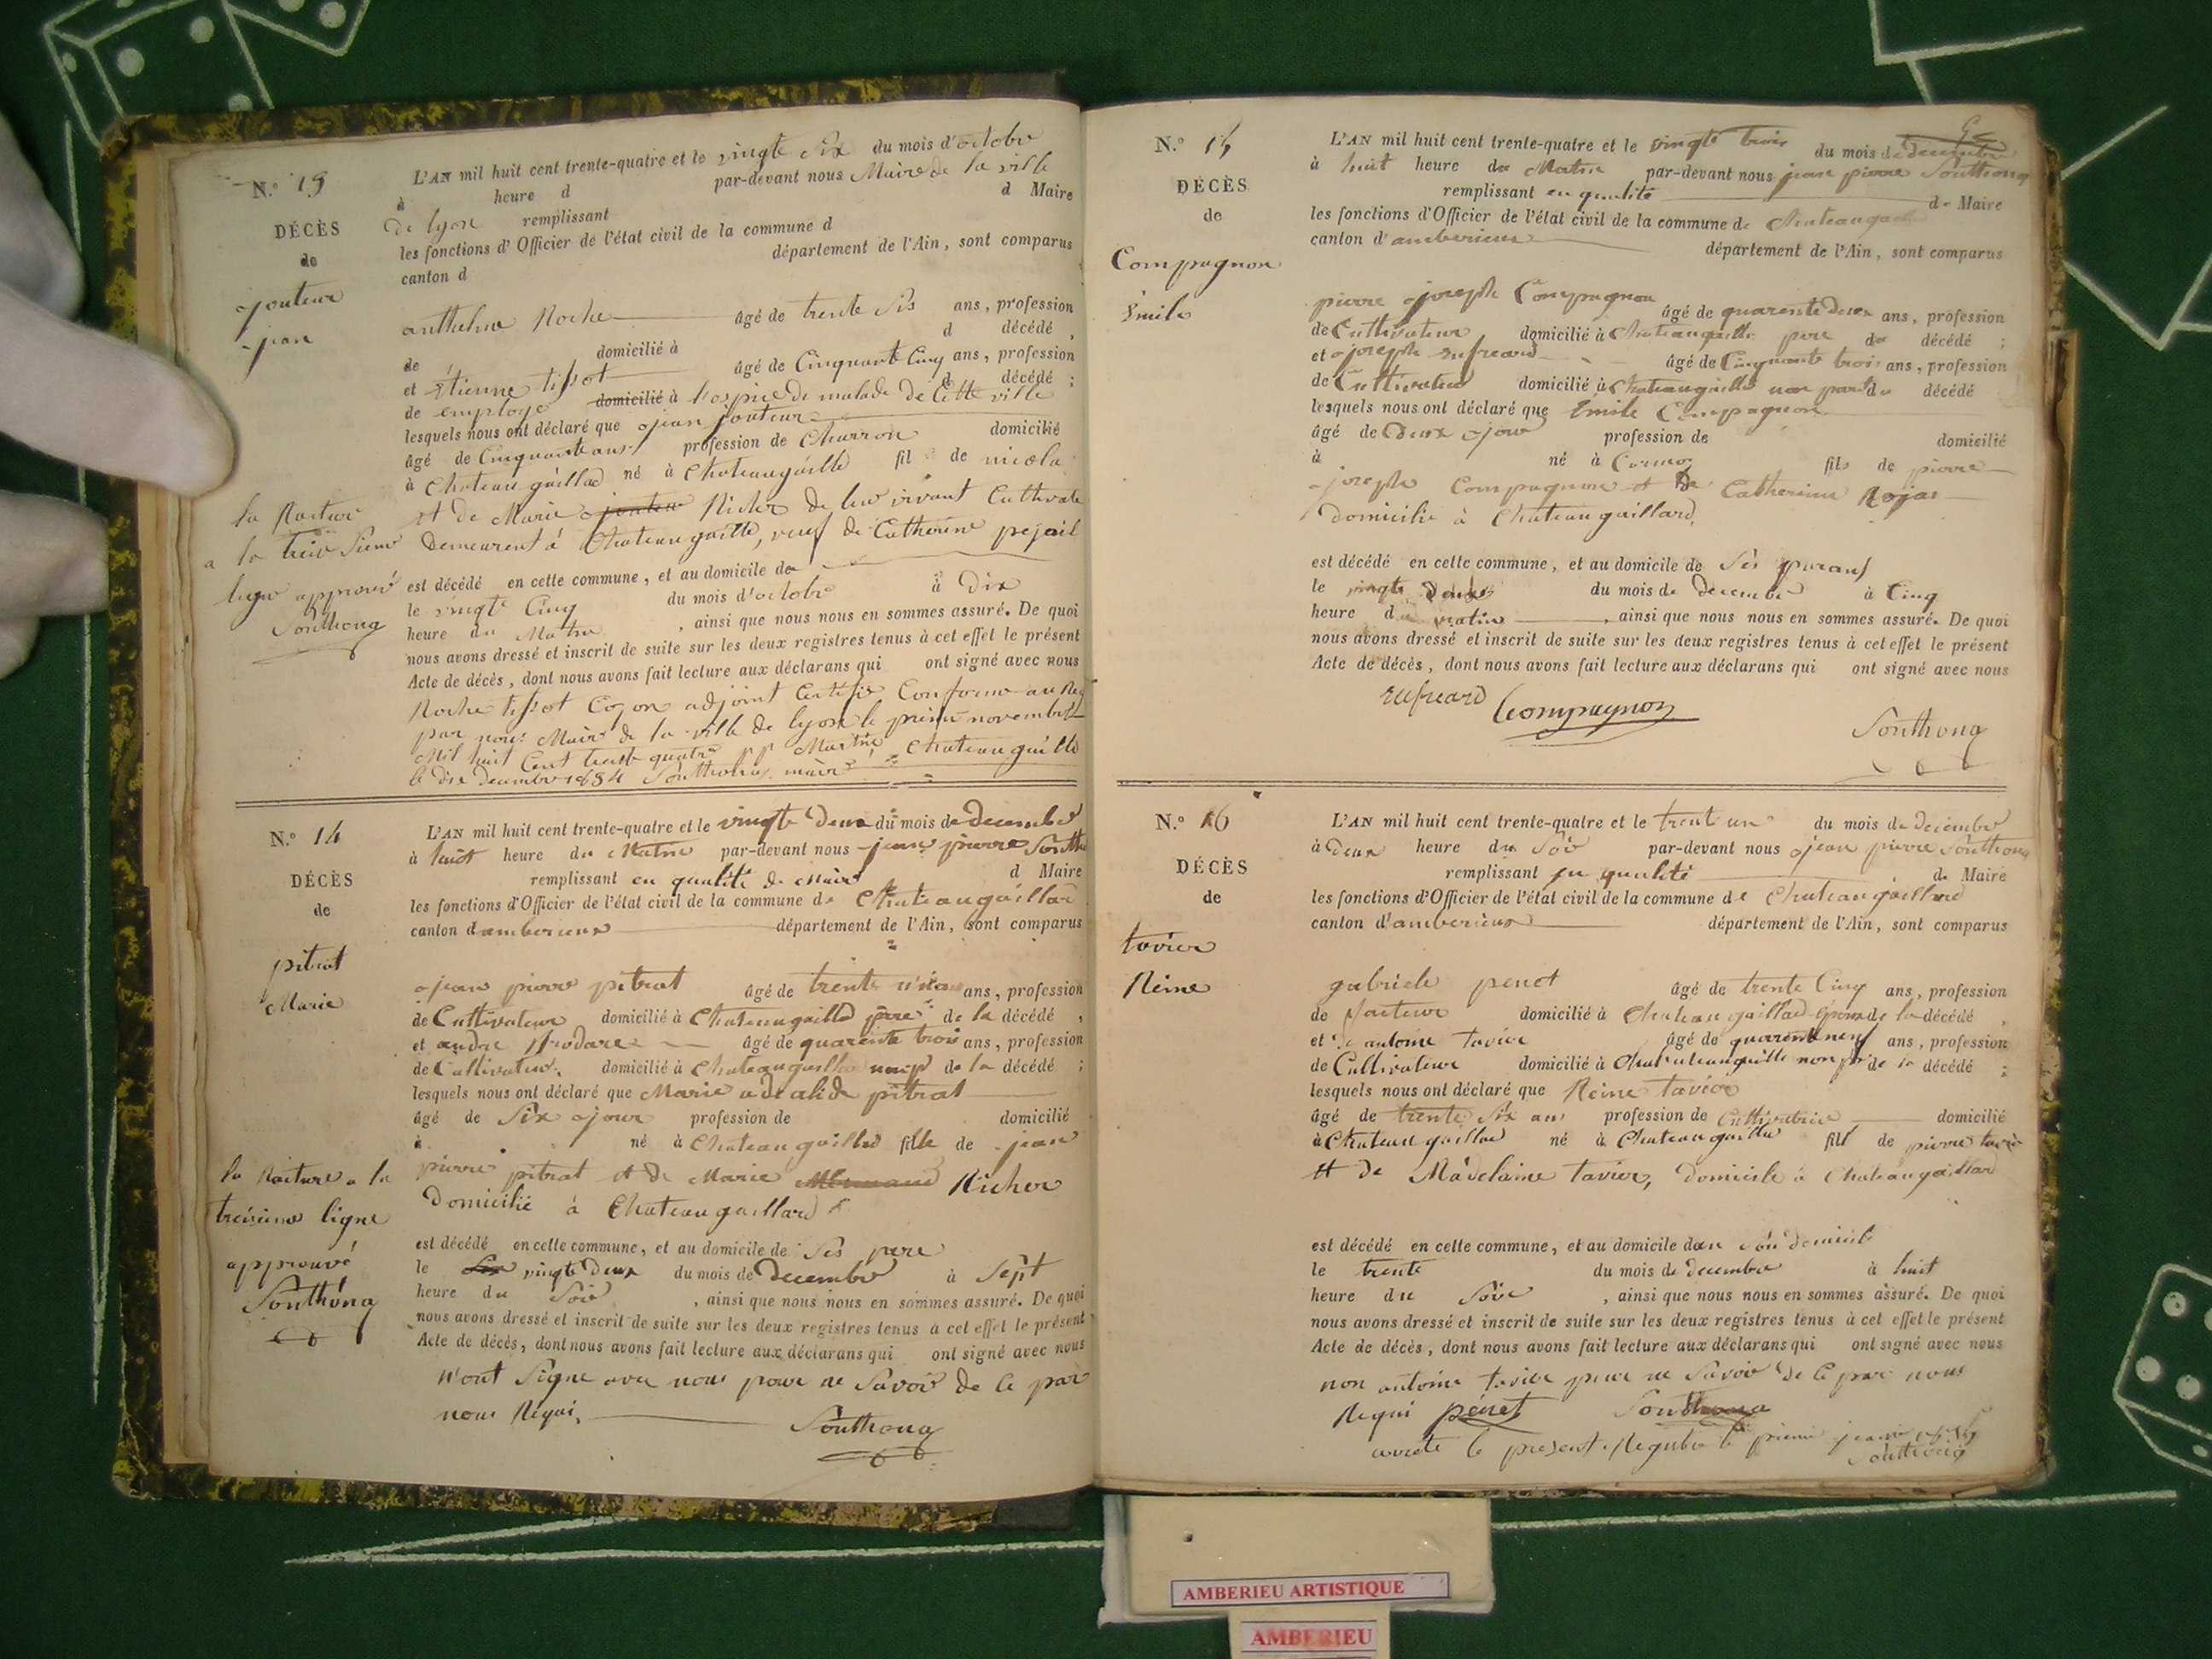 N.º 13
DÉCÈS
de
jouteur
jean
la Rature
a la treisieme
ligne approuvé
Southong
L'AN mil huit cent trente-quatre et le vingte six du mois d'octobre
à heure d par-devant nous Maire de la ville
de lyon remplissant d Maire
les fonctions d'Officier de l'état civil de la commune d
canton d département de l'Ain, sont comparus
anthelme Roche âgé de trente six ans, profession
de domicilié à d décédé,
et Etienne tissot âgé de Cinquante Cinq ans, profession
de employé domicilié à l'ospice de malade de Cette ville d décédé;
lesquels nous ont déclaré que jean jouteur
âgé de Cinquante ans profession de Charron domicilié
à Chateau gaillad né à Chateaugaille fil de nicola
et de Marie jouteur Richer de leur vivant Cultivate
Demeurent à Chateau gaille, veuf de Catherine pejail
est décédé en cette commune, et au domicile de
le vingte Cinq du mois d'octobre à Dix
heure du Matin, ainsi que nous nous en sommes assuré. De quoi
nous avons dressé et inscrit de suite sur les deux registres tenus à cet effet le présent
Acte de décès, dont nous avons fait lecture aux déclarans qui ont signé avec nous
Roche tissot Cogon adjoint Certifie Conforme au Reg
par nous Maire de la ville de lyon le premie novembre
Mil huit Cent trente quatre pp Martin Chateau gaille
le dix decembre 1834 Southong maire
N.º 14
DÉCÈS
de
pitrat
Marie
la Rature a la
treisieme ligne
approuvé
Southong
L'AN mil huit cent trente-quatre et le vingte deux du mois de decembre
à huit heure du Matin par-devant nous jean pierre Southo
remplissant en qualité de Maire d Maire
les fonctions d'Officier de l'état civil de la commune de Chateaugaillar
canton d'amberieux département de l'Ain, sont comparus
jean pierre pitrat âgé de trente ans, profession
de Cultivateur domicilié à Chateaugailld père de la décédé,
et andre âgé de quarente trois ans, profession
de Cultivateur domicilié à Chateaugaille de la décédé;
lesquels nous ont déclaré que Marie adealide pitrat
âgé de Six jour profession de domicilié
à né à Chateaugailled fille de jean
pierre pitrat et de Marie Richer
Domicilié à Chateau gaillard
est décédé en cette commune, et au domicile de Ses pere
le vingte deux du mois de decembre à Sept
heure du Soir, ainsi que nous nous en sommes assuré. De quoi
nous avons dressé et inscrit de suite sur les deux registres tenus à cet effet le présent
Acte de décès, dont nous avons fait lecture aux déclarans qui ont signé avec nous
n'ont Signe avec nous pour ne Savoir de Ce par
nous Requi, Southong
N.º 15
DÉCÈS
de
Compagnon
Emile
L'AN mil huit cent trente-quatre et le vingte trois du mois de decembre
à huit heure du Matin par-devant nous jean pierre Southong
remplissant en qualité de Maire
les fonctions d'Officier de l'état civil de la commune de Chateaugaill
canton d'amberieux département de l'Ain, sont comparus
pierre joseph Compagnon âgé de quarente deux ans, profession
de Cultivateur domicilié à Chateaugaille pere du décédé;
et joseph rufieard âgé de Cinquante trois ans, profession
de Cultivateur domicilié à Chateaugaille non part du décédé
lesquels nous ont déclaré que Emile Compagnon
âgé de Deux jour profession de domicilié
à né à Cormoz fils de pierre
joseph Compagnon et De Catherine Rojat
Domicilié à Chateau gaillard
est décédé en cette commune, et au domicile de Ses parans
le vingte deux du mois de decembre à Cinq
heure du matin, ainsi que nous nous en sommes assuré. De quoi
nous avons dressé et inscrit de suite sur les deux registres tenus à cet effet le présent
Acte de décès, dont nous avons fait lecture aux déclarans qui ont signé avec nous
rufieard Compagnon
Southong
N.º 16
DÉCÈS
de
tavier
Reine
L'AN mil huit cent trente-quatre et le trent un du mois de decembre
à deux heure du Soir par-devant nous jean pierre Southong
remplissant en qualité de Maire
les fonctions d'Officier de l'état civil de la commune de Chateaugaillard
canton d'amberieux département de l'Ain, sont comparus
gabriele penet âgé de trente Cinq ans, profession
de facteur domicilié à Chateau gaillad Epoux de la décédé,
et antoine tavier âgé de quarente neuf ans, profession
de Cultivateur domicilié à Chateaugaille non de la décédé;
lesquels nous ont déclaré que Reine tavier
âgé de trente Six ans profession de Cultivatrice domicilié
à Chateau gaillad né à Chateau gaille fill de pierre tavie
et de Madelaine tavier, Domicile à Chateaugaillard
est décédé en cette commune, et au domicile dan son domicile
le trente du mois de decembre à huit
heure du Soir, ainsi que nous nous en sommes assuré. De quoi
nous avons dressé et inscrit de suite sur les deux registres tenus à cet effet le présent
Acte de décès, dont nous avons fait lecture aux déclarans qui ont signé avec nous
non antoine tavier pour ne Savoir de Ce par nous
Requi penet Southong
arrete le present Registre le premie janvier
Southong
AMBERIEU ARTISTIQUE
AMBERIEU